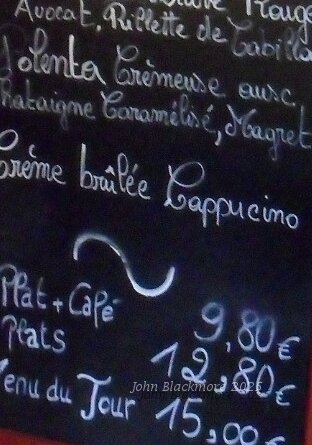 Rouge
Avocat, Rillette de Cabilla
Polenta Crèmeuse auxc
hataigne Caramélisé, Magret
Crème brûlée Cappucino
Plat + Café 9,80€
Plats 12,80€
Menu du Jour 15,00€
John Blackmore 2025